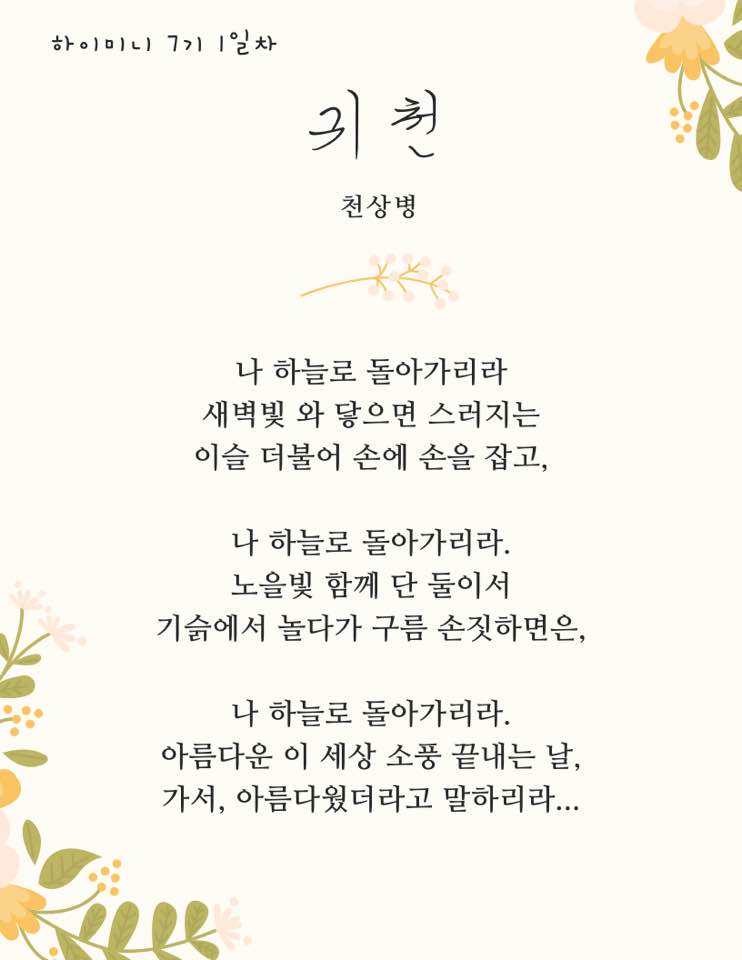 하이미니 7기 1일차
귀천
천상병
나 하늘로 돌아가리라
새벽빛 와 닿으면 스러지는
이슬 더불어 손에 손을 잡고,
나 하늘로 돌아가리라.
노을빛 함께 단 둘이서
기슭에서 놀다가 구름 손짓하면은,
나 하늘로 돌아가리라.
아름다운 이 세상 소풍 끝내는 날,
가서, 아름다웠더라고 말하리라...